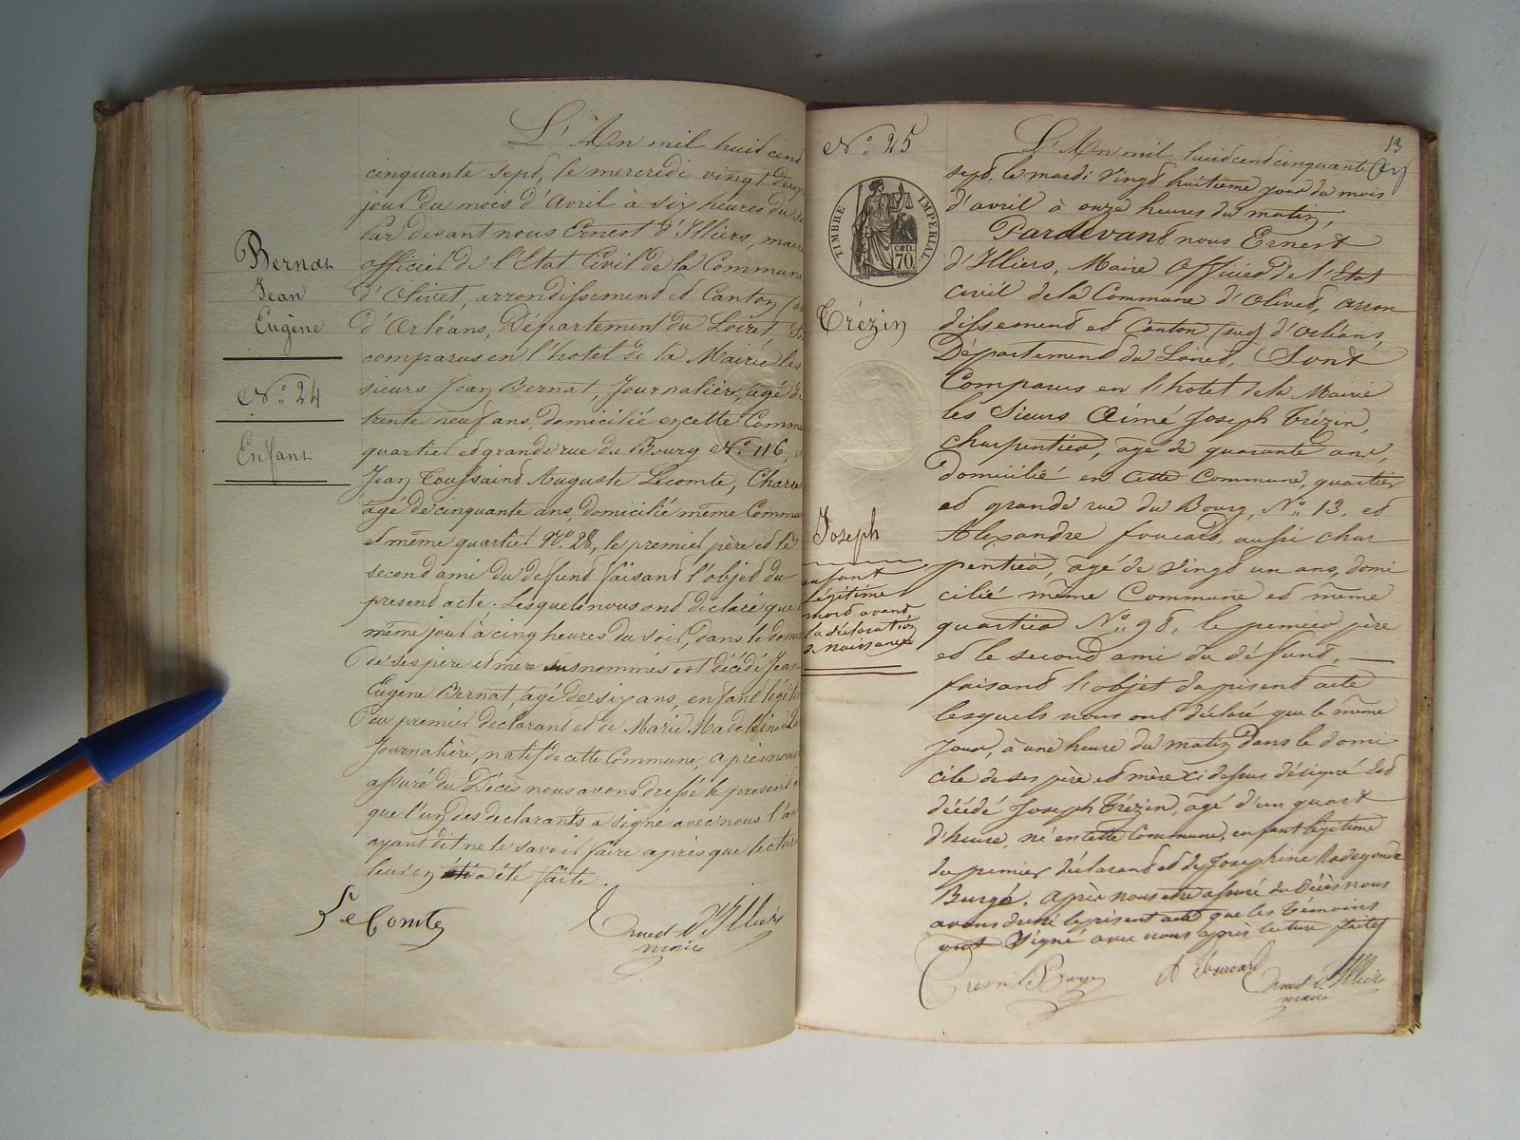 L'An mil huit cent
cinquante sept, le mercredi vingt deux
jour du mois d'Avril à six heures du
Par devant nous Ernest d'Illiers, maire
officier de l'Etat Civil de la Commune
d'Olivet, arrondissement et Canton
d'Orléans, Département du Loiret
comparus en l'hotel de la Mairie les
sieurs Jean Bernat, Journalière, agé de
trente neuf ans, domicilié en cette Comm
quartier et grande rue du Bourg No. 116,
Jean Toussaint Auguste Lecomte, Charr
âgé de cinquante ans, domicilié même Commu
et même quartier No. 28, le premier père et le
second ami du defunt faisant l'objet du
present acte. Lesquels nous ont declaré que
même jour à cinq heures du soir, dans le dom
de ses père et mère susnommés est décédé Jean
Eugène Bernat, agé de six ans, enfant légit
du premier declarant et de Marie Madeleine
Journalière, natif de cette Commune, après nous
assuré du Décès nous avons dressé le present
que l'un des declarants a signé avec nous l'
ayant dit ne le savoir faire après que lecture
leur en a été faite.
LeComte
Ernest d'Illiers
maire
Bernat
Jean
Eugène
No. 24
Enfant
13
No. 25
L'An mil huit cent cinquante
sept, le mardi vingt huitième jour du mois
d'avril à onze heures du matin,
Pardevant nous Ernest
d'Illiers, Maire Officier de l'Etat
civil de la Commune d'Olivet, arron
dissement et Canton sud d'Orléans,
Département du Loiret, Sont
Comparus en l'hotel de la Mairie
les Sieurs Aimé Joseph Trézin,
charpentier, agé de quarante ans,
domicilié en cette Commune, quartier
et grande rue du Bourg, No. 13. et
Alexandre foucard, aussi char
pentier, agé de vingt un ans, domi
cilié même Commune et même
quartier No. 98, le premier père
et le second ami du défunt,
faisant l'objet du présent acte
lesquels nous ont déclaré que le même
jour, à une heure du matin dans le domi
cile de ses père et mère ci dessus désigné est
décédé Joseph Trézin, agé d'un quart
d'heure, né en cette Commune, enfant légitime
du premier déclarant et de Josephine Radegonde
Burgé. Après nous être assuré du Décès nous
avons dressé le présent acte que les témoins
ont signé avec nous après lecture faite
A foucard
Ernest d'Illiers
maire
TIMBRE IMPÉRIAL
70
Trézin
Joseph
enfant
légitime
mort avant
la déclaration
de naissance